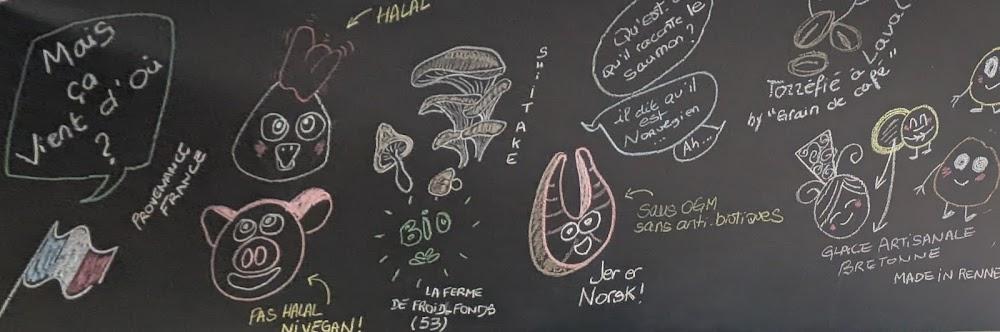 Mais
ça
vient d'où
?
PROVENANCE
FRANCE
HALAL
PAS HALAL
NI VEGAN!
SHITAKE
BIO
LA FERME
DE FROID-FONDS
(53)
Qu'est-ce
qu'il raconte le
saumon?
il dit qu'il
est
Norvegien
Ah...
Jer er
Norsk!
Sans OGM
sans anti-biotiques
Torréfié à Laval
by "Grain de café"
GLACE ARTISANALE
BRETONNE
MADE IN RENNE